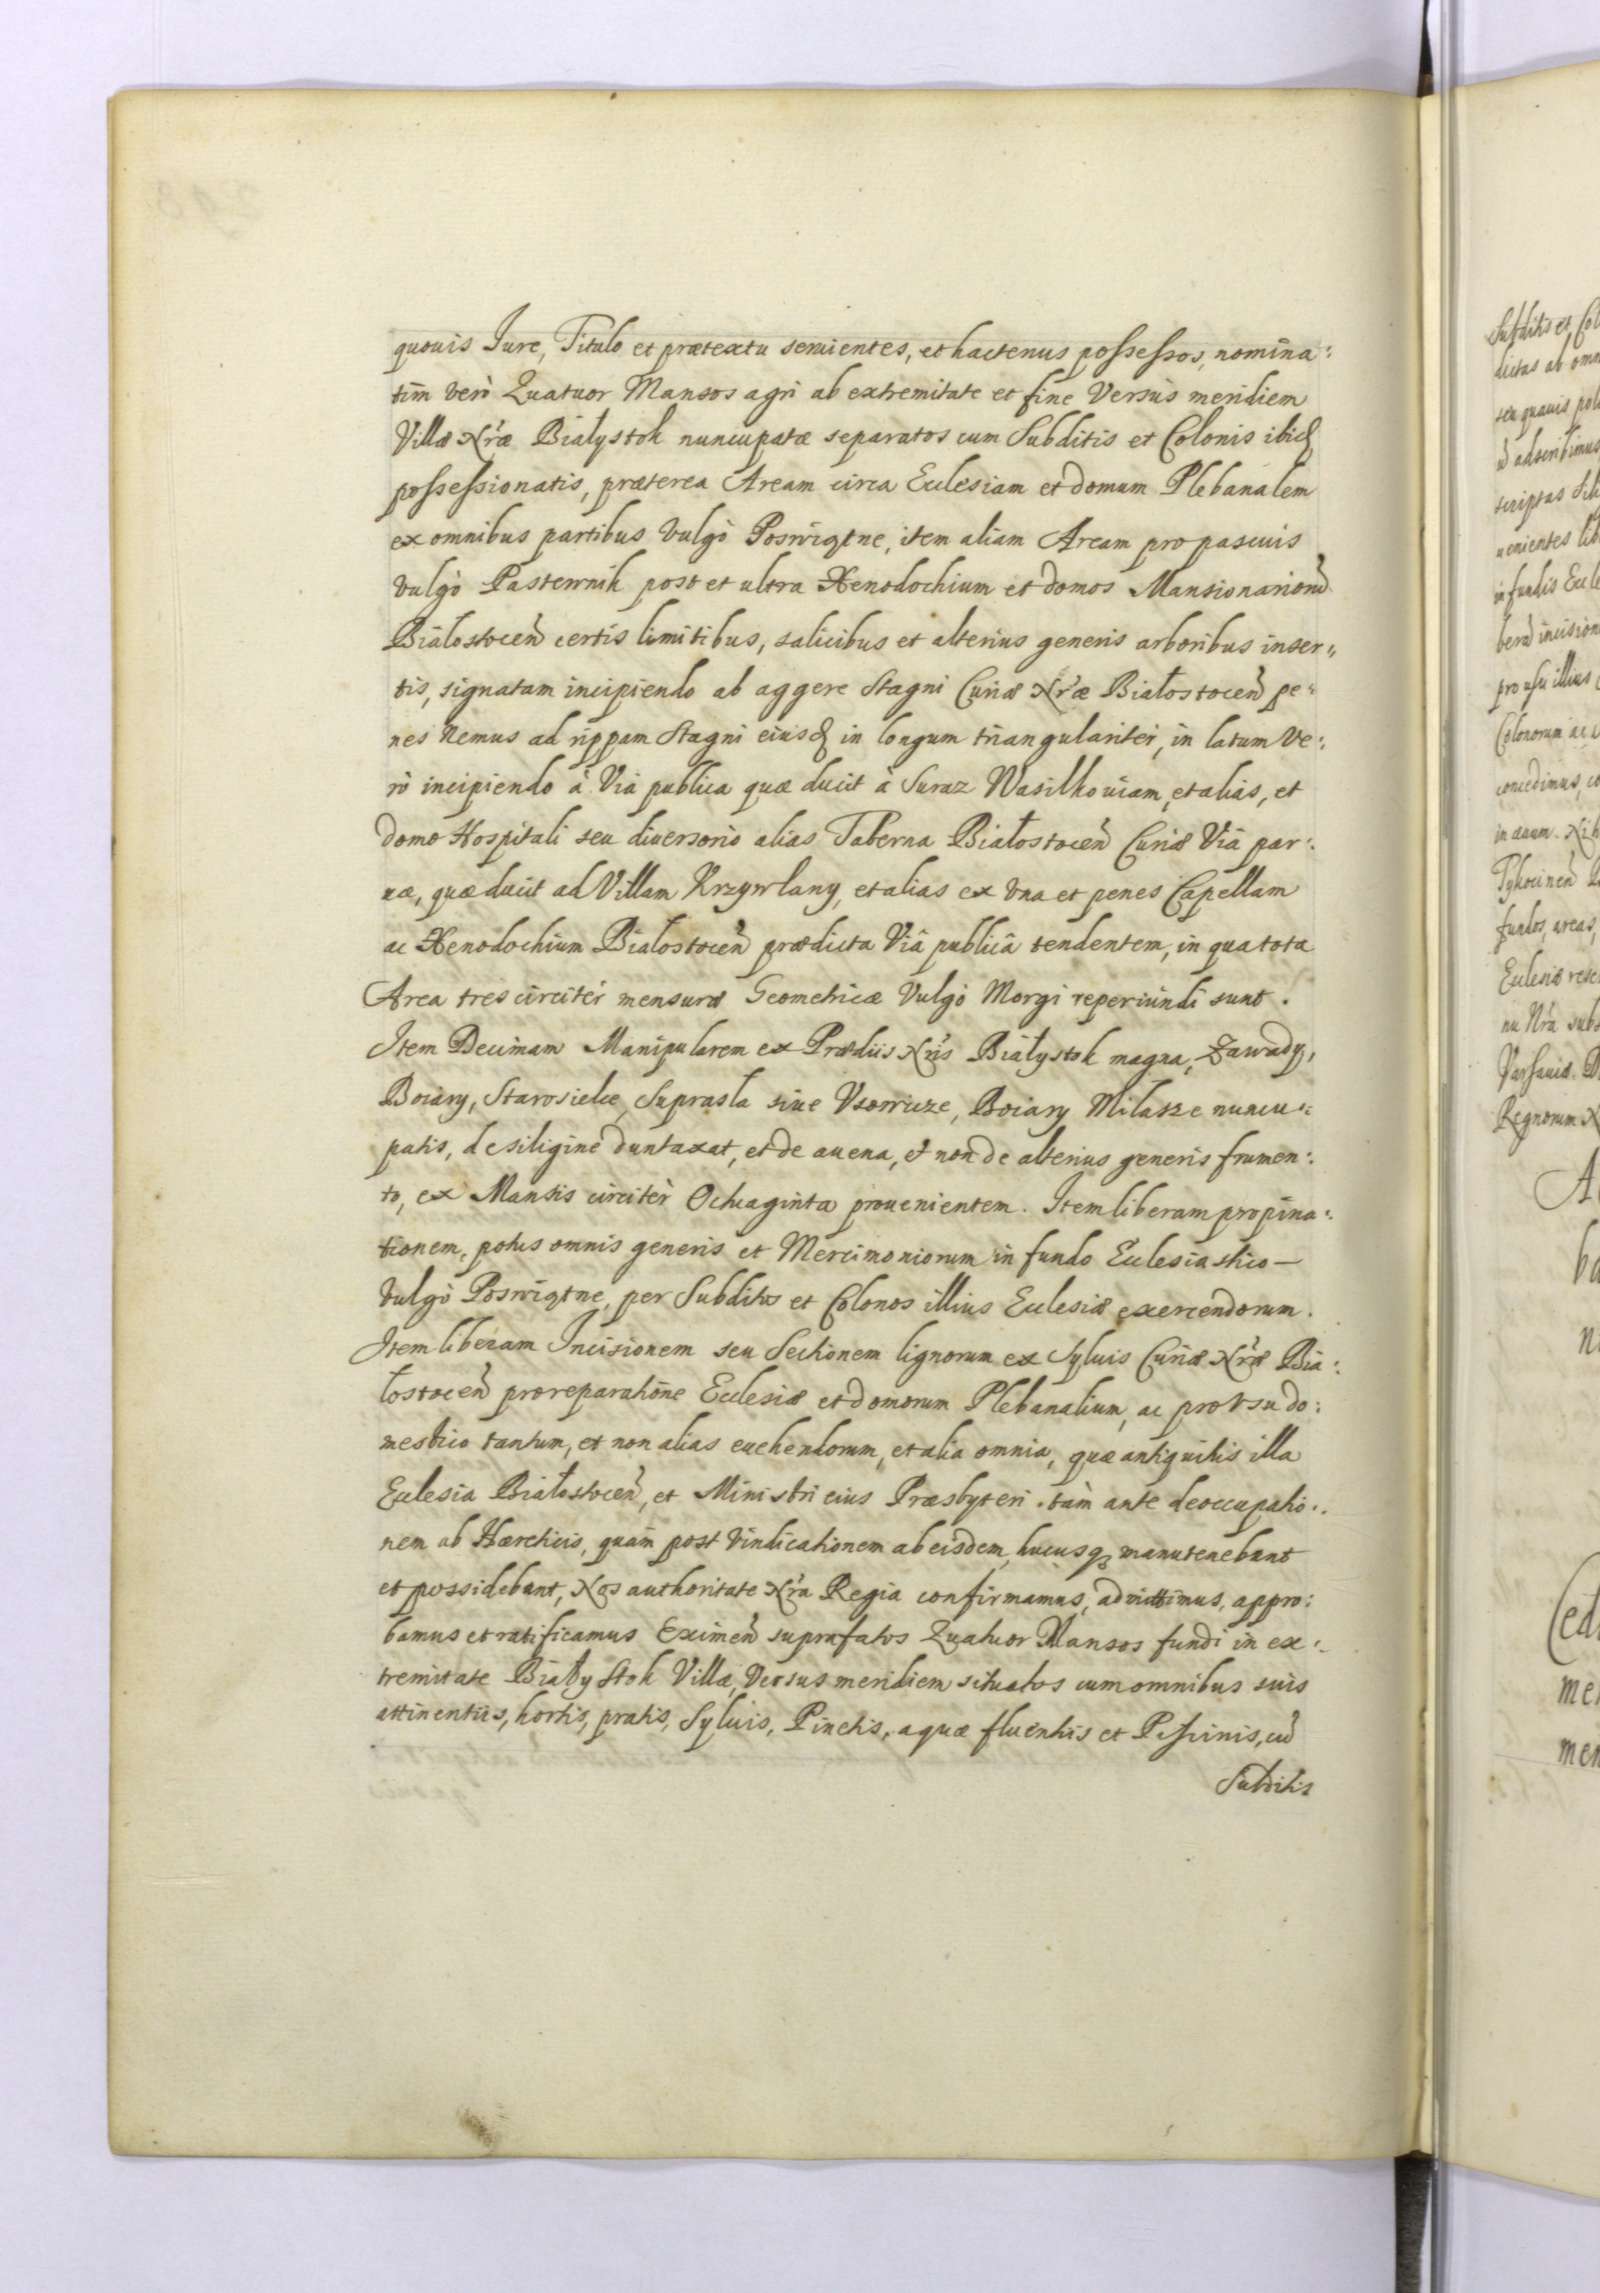 quouis Jure, Titulo et prætextu seruientes, et hactenus possessos, nomina:
tim verò Quatuor Mansos agri ab extremitate et fine Versùs meridiem
Villæ Nrae Białystok nuncupatæ separatos cum Subditis et Colonis ibid
possessionatis, præterea Aream circa Ecclesiam et domum Plebanalem
ex omnibus partibus vulgò Poswiątne, item aliam Aream pro pascuis
vulgò Pasternik post et ultra Xenodochium et domos Mansionariorũ
Białostoceñ certis limitibus, salicibus et alterius generis arboribus inser:
tis, signatam incipiendo ab aggere Stagni Curiæ Nræ Białostoceñ pe:
nes Nemus ad rippam Stagni eiusd in longum triangulariter, in latum ve:
rò incipiendo à Via publica quæ ducit à Suraz Wasilkouiam, et alias, et
domo Hospitali seu diuersorio alias Taberna Białostoceñ Curiæ Viâ par:
uæ, quæ ducit ad Villam Krzywlany, et alias ex vna et penes Capellam
ac Xenodochium Białostoceñ prædicta Viâ publicâ tendentem, in qua tota
Area tres circitèr mensuræ Geometricæ vulgò Morgi reperiundi sunt.
Item Decimam Manipularem ex Prædiis Nris Białystok magna, Zawady,
Boiary, Starosielce, Suprasla siue Vsowicze, Boiary Milasze nuncu:
patis, de siligine duntaxat, et de auena, et non de alterius generis frumen:
to, ex Mansis circitèr Octuaginta prouenientem. Item liberam propina:
tionem, potus omnis generis et Mercimoniorum in fundo Ecclesiastico —
vulgò Poswiątne, per Subditos et Colonos illius Ecclesiæ exercendorum.
Item liberam Incisionem seu Sectionem lignorum ex Syluis Curiæ Nræ Bia:
łostoceñ pro reparatione Ecclesiæ et domorum Plebanalium, ac pro vsu do:
mestico tantum, et non alias euehendorum, et alia omnia, quæ antiquitis illa
Ecclesia Białostoceñ, et Ministri eius Præsbyteri tàm ante deoccupatio:
nem ab Hæreticis, quàm post vindicationem ab eisdem, hucusq manutenebant
et possidebant, Nos authoritate Nra Regia confirmamus, admittimus, appro:
bamus et ratificamus Eximeñ suprafatos Quatuor Mansos fundi in ex:
tremitate Białystok Villæ, Versus meridiem situatos cum omnibus suis
attinentiis, hortis, pratis, Syluis, Pinetis, aquæ fluentis et Piscinis, cũ
Subditis